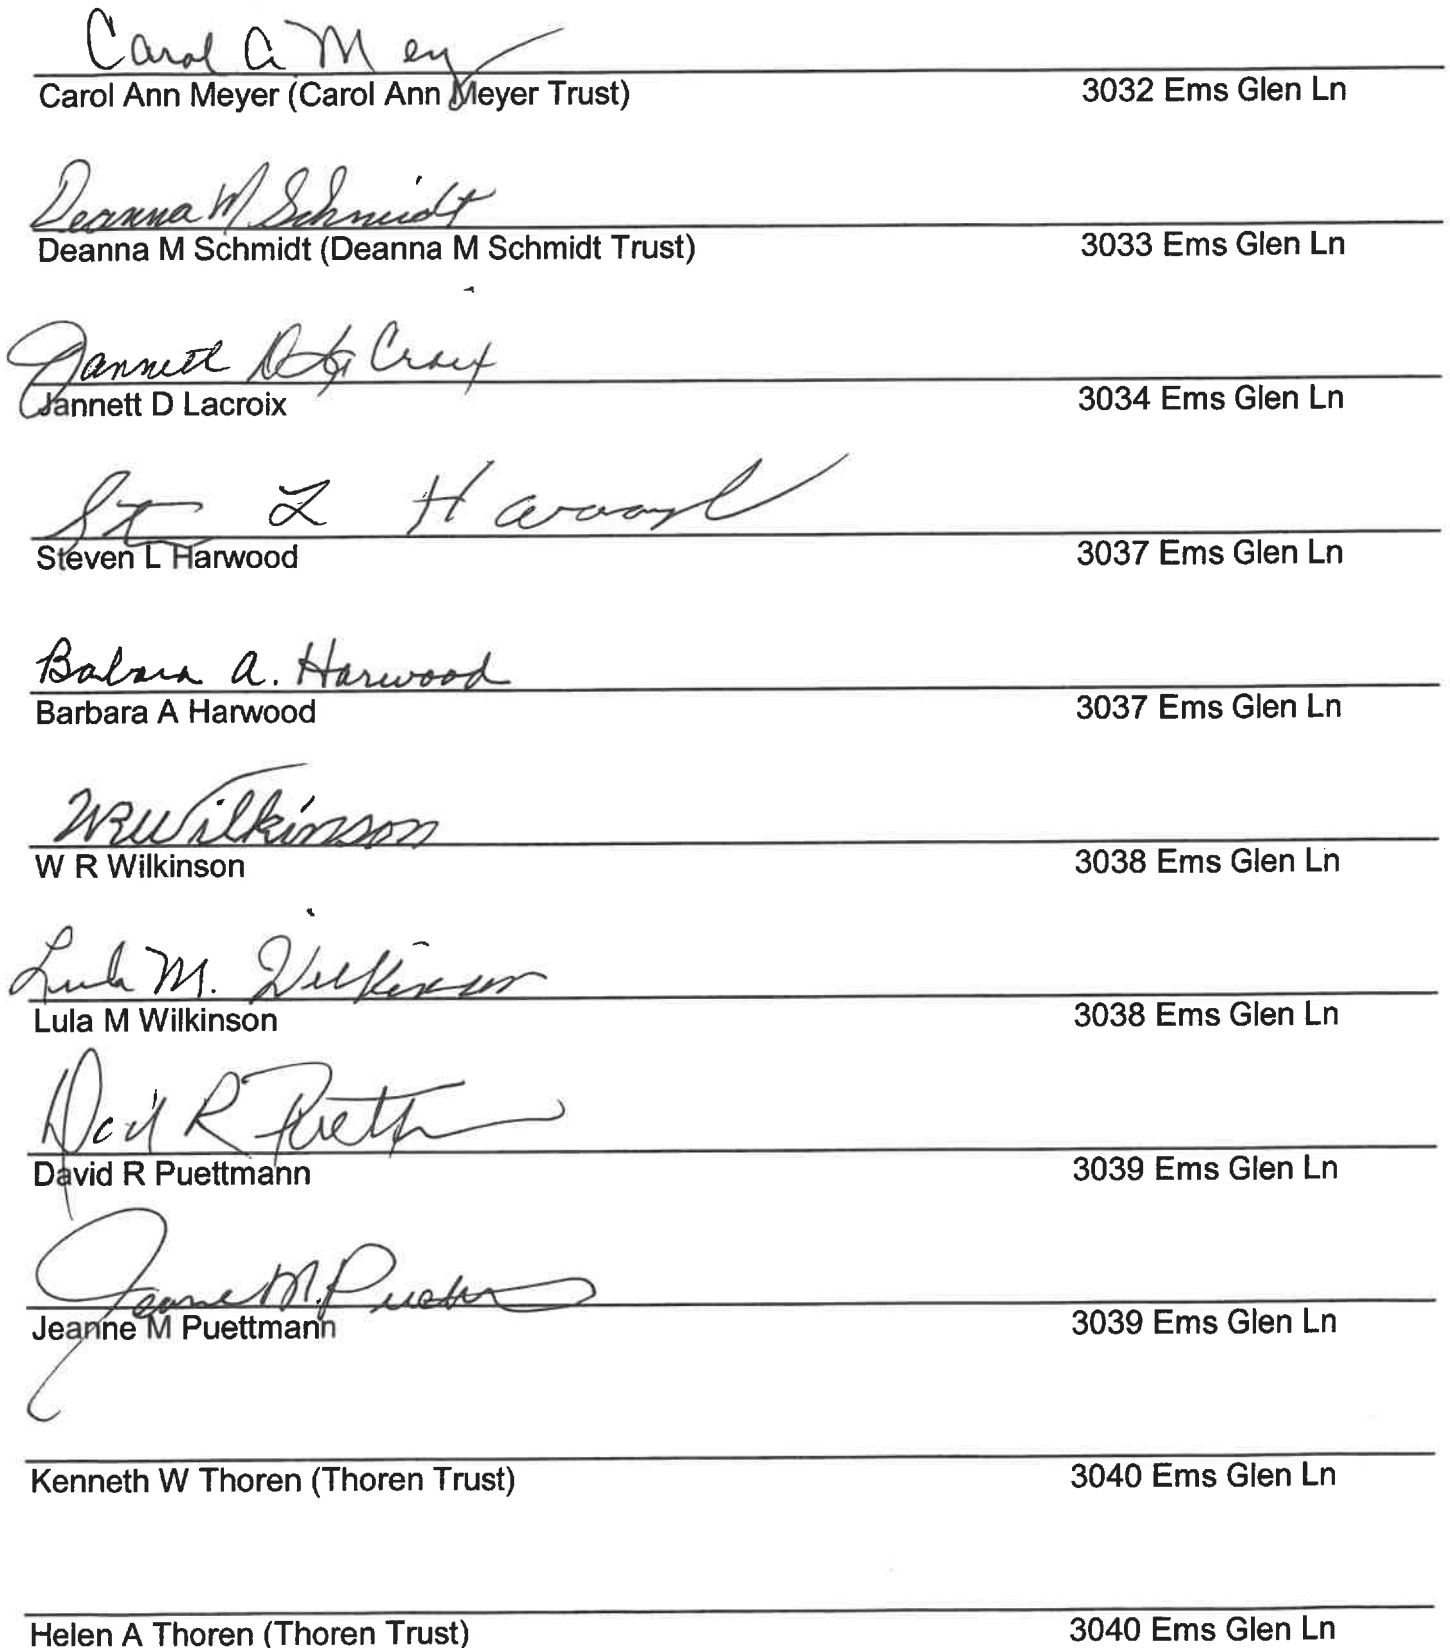 Carol A Mey
Carol Ann Meyer (Carol Ann Meyer Trust) 3032 Ems Glen Ln
Deanna M Schmidt
Deanna M Schmidt (Deanna M Schmidt Trust) 3033 Ems Glen Ln
Jannett D La Croix
Jannett D Lacroix 3034 Ems Glen Ln
L Harwood
Steven L Harwood 3037 Ems Glen Ln
Barbara A. Harwood
Barbara A Harwood 3037 Ems Glen Ln
WR Wilkinson
W R Wilkinson 3038 Ems Glen Ln
Lula M. Wilkinson
Lula M Wilkinson 3038 Ems Glen Ln
David R
David R Puettmann 3039 Ems Glen Ln
Jeanne M.
Jeanne M Puettmann 3039 Ems Glen Ln
Kenneth W Thoren (Thoren Trust) 3040 Ems Glen Ln
Helen A Thoren (Thoren Trust) 3040 Ems Glen Ln